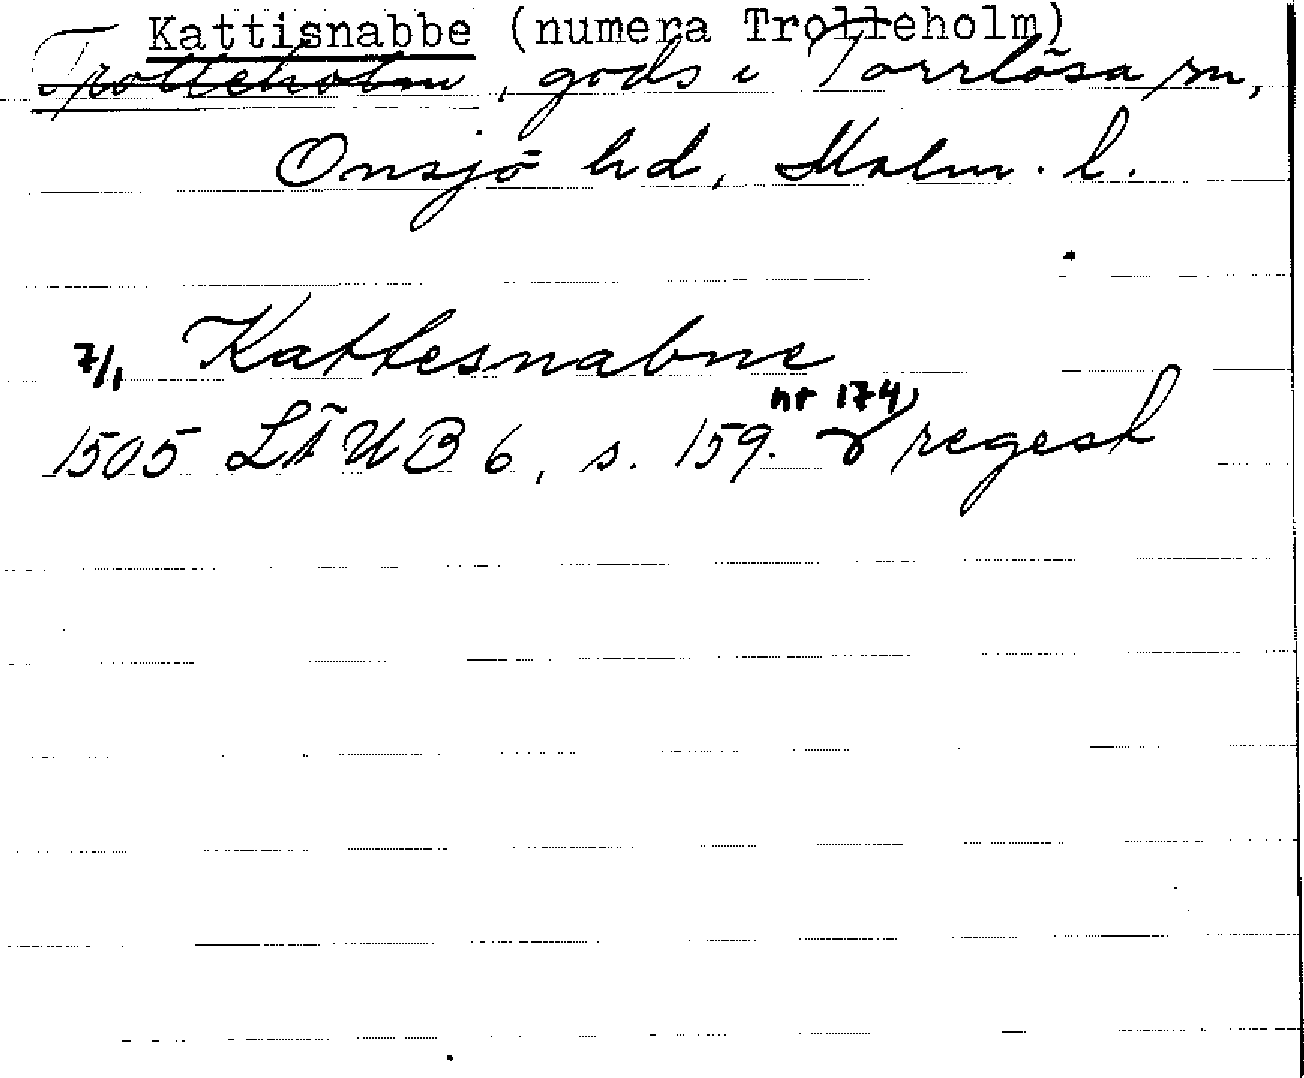 Kattisnabbe (numera Trolleholm)
Trolleholm, gods i Torrlösa sn,
Onsjö hd, Malm. l.
7/1 Kattesnabne
nr 174
1505 LÄUB 6, s. 159. regest